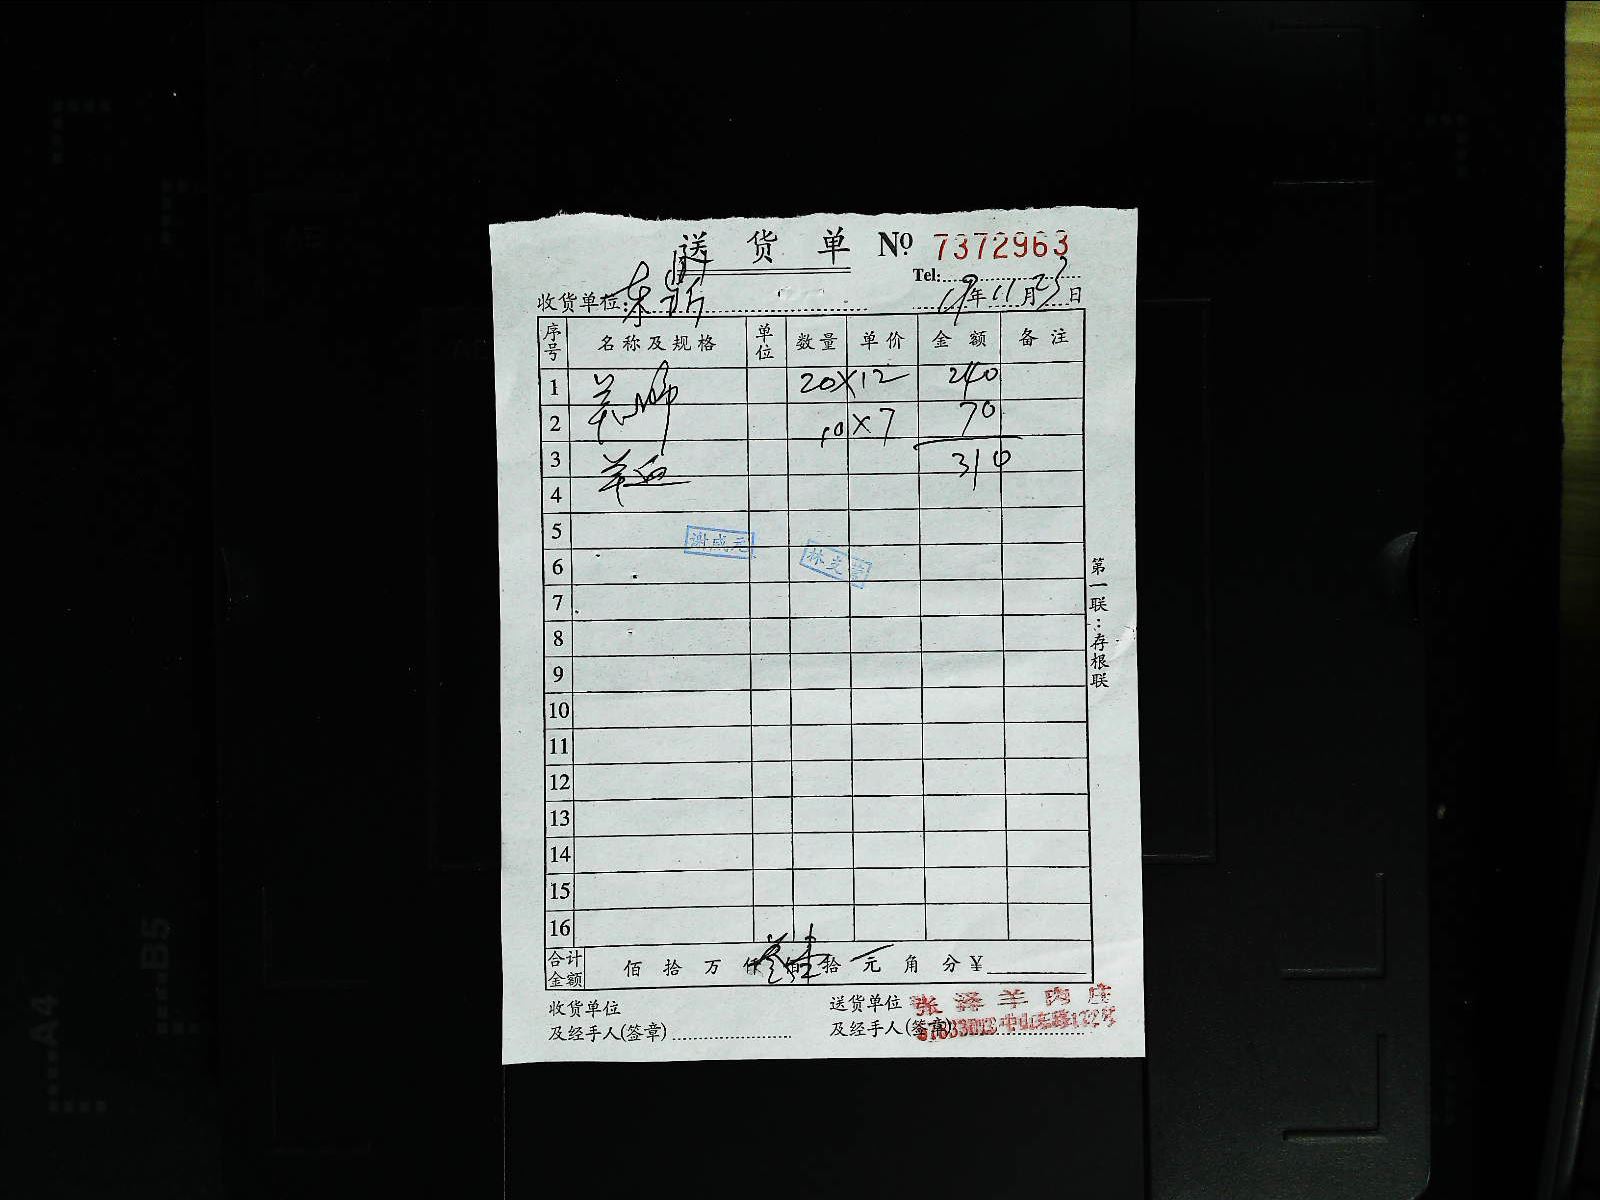 送货单 № 7372963
Tel:
收货单位: 19年11月23日
序号 名称及规格 单位 数量 单价 金额 备注
1 20×12 240
2 10×7 70
3 羊血 310
4
5
6
7
8
9
10
11
12
13
14
15
16
谢成元
合计金额 佰拾万仟佰拾元角分¥
收货单位 送货单位 张泽羊肉庄
及经手人(签章) 及经手人(签章)
第一联:存根联